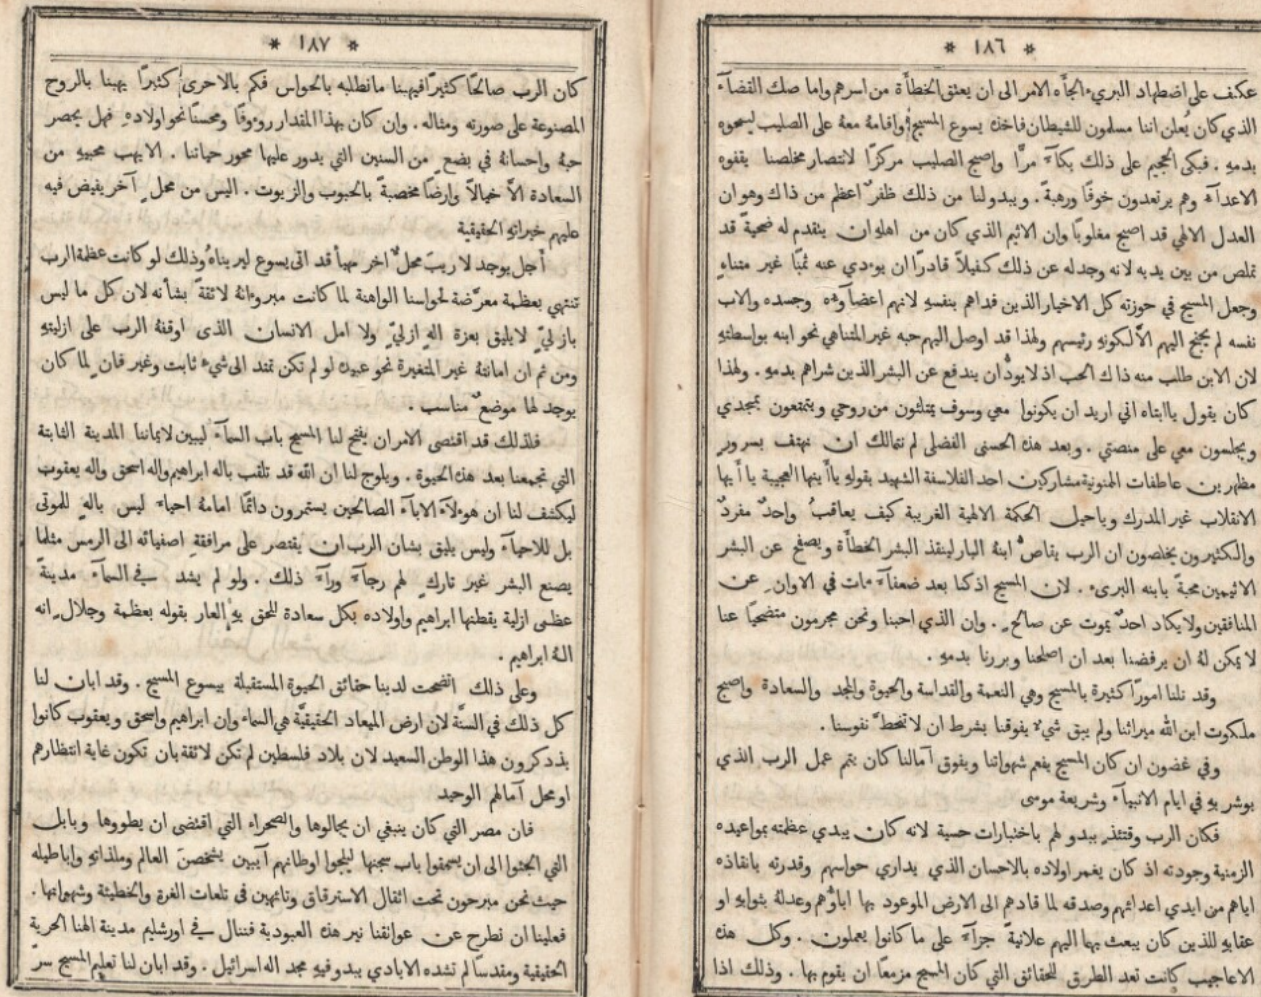 * ١٨٦ *
عكف على اضطهاد البريء الجأه الامر الى ان يعتق الخطأة من اسرهم واما صك القضآء
الذي كان يُعلن اننا مسلمون للشيطان فاخذه يسوع المسيح واقامهُ معهُ على الصليب ليمحوه
بدمهِ . فبكى الجحيم على ذلك بكآءً مرًّا واصبح الصليب مركزًا لانتصار مخلصنا يقفوه
الاعدآء وهم يرتعدون خوفًا ورهبةً . ويبدو لنا من ذلك ظفرٌ اعظم من ذاك وهو ان
العدل الالهي قد اصبح مغلوبًا وان الاثيم الذي كان من اهلهِ ان يتقدم له ضحيةً قد
تملص من بين يديه لانه وجد له عن ذلك كفيلاً قادرًا ان يوءدي عنه ثمنًا غير متناهٍ
وجعل المسيح في حوزته كل الاخيار الذين فداهم بنفسهِ لانهم اعضآوءه وجسده والاب
نفسه لم يجنح اليهم الاَّ لكونهِ رئيسهم ولهذا قد اوصل اليهم حبه غير المتناهي نحو ابنه بواسطتهِ
لان الابن طلب منه ذاك الحب اذ لا يودُّ ان يندفع عن البشر الذين شراهم بدمهِ . ولهذا
كان يقول يا ابتاه اني اريد ان يكونوا معي وسوف يمتلئون من روحي ويتمتعون بمجدي
ويجلسون معي على منصتي . وبعد هذه الحسنى الفضلى لم نتمالك ان نهتف بسرورٍ
مظهرين عاطفات المنونية مشاركين احد الفلاسفة الشهيد بقولهِ يا أيتها العجيبة يا أيها
الانقلاب غير المدرك وياحيل الحكمة الالهية الغريبة كيف يعاقبُ واحدٌ مفردٌ
والكثيرون يخلصون ان الرب يقاصُّ ابنهُ البار لينقذ البشر الخطأة ويصفح عن البشر
الاثيمين محبةً بابنه البريء . لان المسيح اذ كنا بعد ضعفآء مات في الاوان عن
المنافقين ولا يكاد احدٌ يموت عن صالحٍ . وان الذي احبنا ونحن مجرمون متضحيًا عنا
لا يمكن لهُ ان يرفضنا بعد ان اصلحنا وبررنا بدمهِ .
وقد نلنا امورًا كثيرة بالمسيح وهي النعمة والقداسة والحيوة والمجد والسعادة واصبح
ملكوت ابن الله ميراثنا ولم يبق شيءٌ يفوقنا بشرط ان لا تنحطَّ نفوسنا .
وفي غضون ان كان المسيح ينعم شهواتنا ويفوق آمالنا كان يتم عمل الرب الذي
بوشر بهِ في ايام الانبيآء وشريعة موسى
فكان الرب وقتئذٍ يبدو لهم باختبارات حسية لانه كان يبدي عظمته بمواعيده
الزمنية وجودته اذ كان يغمر اولاده بالاحسان الذي يداري حواسهم وقدرته بانقاذه
اياهم من ايدي اعدائهم وصدقه لما قادهم الى الارض الموعود بها اباؤُهم وعدلهُ بثوابهِ او
عقابهِ للذين كان يبعث بهما اليهم علانيةً جزآءً على ما كانوا يعملون . وكل هذه
الاعاجيب كانت تعد الطرق للحقائق التي كان المسيح مزمعًا ان يقوم بها . وذلك اذا
* ١٨٧ *
كان الرب صالحًا كثيرًا فيهبنا ما نطلبه بالحواس فكم بالاحرى كثيرًا يهبنا بالروح
المصنوعة على صورته ومثاله . وان كان بهذا المقدار روءوفًا ومحسنًا نحو اولادهِ فهل يحصر
حبهُ واحسانهُ في بضعٍ من السنين التي يدور عليها محور حياتنا . الا يهب محبيهِ من
السعادة الاَّ خيالاً وارضًا مخصبةً بالحبوب والزيوت . اليس من محلٍ آخر يفيض فيه
عليهم خيراتهِ الحقيقية
أجل يوجد لا ريب محلٌ اخر مهيأ قد اتى يسوع ليريناهُ وذلك لو كانت عظمة الرب
تنتهي بعظمة معرَّضة لحواسنا الواهنة لما كانت مبروءاتهُ لائقةً بشأنه لان كل ما ليس
بازليٍّ لا يليق بعزة الهٍ ازليٍّ ولا امل الانسان الذى اوقفهُ الرب على ازليتهِ
ومن ثم ان امانتهُ غير المتغيرة نحو عبيده لو لم تكن تمتد الى شيءٍ ثابت وغير فانٍ لما كان
يوجد لها موضعٌ مناسب .
فلذلك قد اقتضى الامر ان يفتح لنا المسيح باب السمآء ليبين لايماننا المدينة الثابتة
التي تجمعنا بعد هذه الحيوة . ويلوح لنا ان الله قد تلقب باله ابراهيم واله اسحق واله يعقوب
ليكشف لنا ان هوءلآء الابآء الصالحين يستمرون دائمًا امامهُ احياءً ليس بالهٍ للموتى
بل للاحيآء وليس يليق بشان الرب ان يقتصر على مرافقة اصفيائه الى الرمس مثلما
يصنع البشر غير تاركٍ لهم رجآءً ورآءَ ذلك . ولو لم يشد في السمآء مدينةً
عظمى ازلية يقطنها ابراهيم واولاده بكل سعادة للحق بهِ العار بقوله بعظمة وجلالٍ انه
الهُ ابراهيم .
وعلى ذلك اتضحت لدينا حقائق الحيوة المستقبلة بيسوع المسيح . وقد ابان لنا
كل ذلك في السنَّة لان ارض الميعاد الحقيقيَّة هي السماء وان ابراهيم واسحق ويعقوب كانوا
يذدكرون هذا الوطن السعيد لان بلاد فلسطين لم تكن لائقة بان تكون غاية انتظارهم
او محل آمالهم الوحيد
فان مصر التي كان ينبغي ان يجالوها والصحراء التي اقتضى ان يطووها وبابل
التي الجئوا الى ان يسمقوا باب سجنها ليلجوا اوطانهم آيبين يشخصنَ العالم وملذاتهِ واباطيله
حيث نحن مبرحون تحت اثقال الاسترقاق وتائهين في تلعات الغرة والخطيئة وشهواتها .
فعلينا ان نطرح عن عواتقنا نير هذه العبودية فننال في اورشليم مدينة الهنا الحرية
الحقيقية ومقدسًا لم تشده الايادي يبدو فيهِ مجد اله اسرائيل . وقد ابان لنا تعليم المسيح سرّ